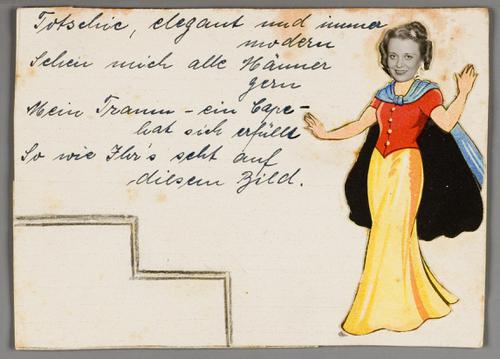 Totschic, elegant und immer
modern
Sehen mich alle Männer
gern
Mein Traum – ein Cape –
hat sich erfüllt
So wie Ihr's seht auf
diesem Bild.